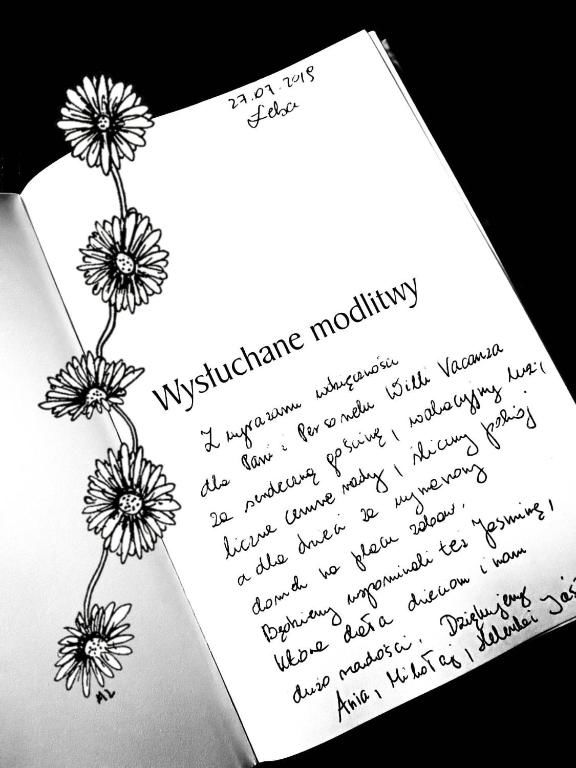 27.07.2019
Łeba
Wysłuchane modlitwy
Z wyrazami wdzięczności
dla Pani i Personelu Willi Vacanza
za serdeczną gościnę, wakacyjny luz,
liczne cenne rady, śliczny pokój
a dla dzieci za wymarzony
domek na placu zabaw.
Będziemy wspominali też Jaśminę,
która dała dzieciom i nam
dużo radości. Dziękujemy
Ania, Mikołaj, Helenka i Jaś